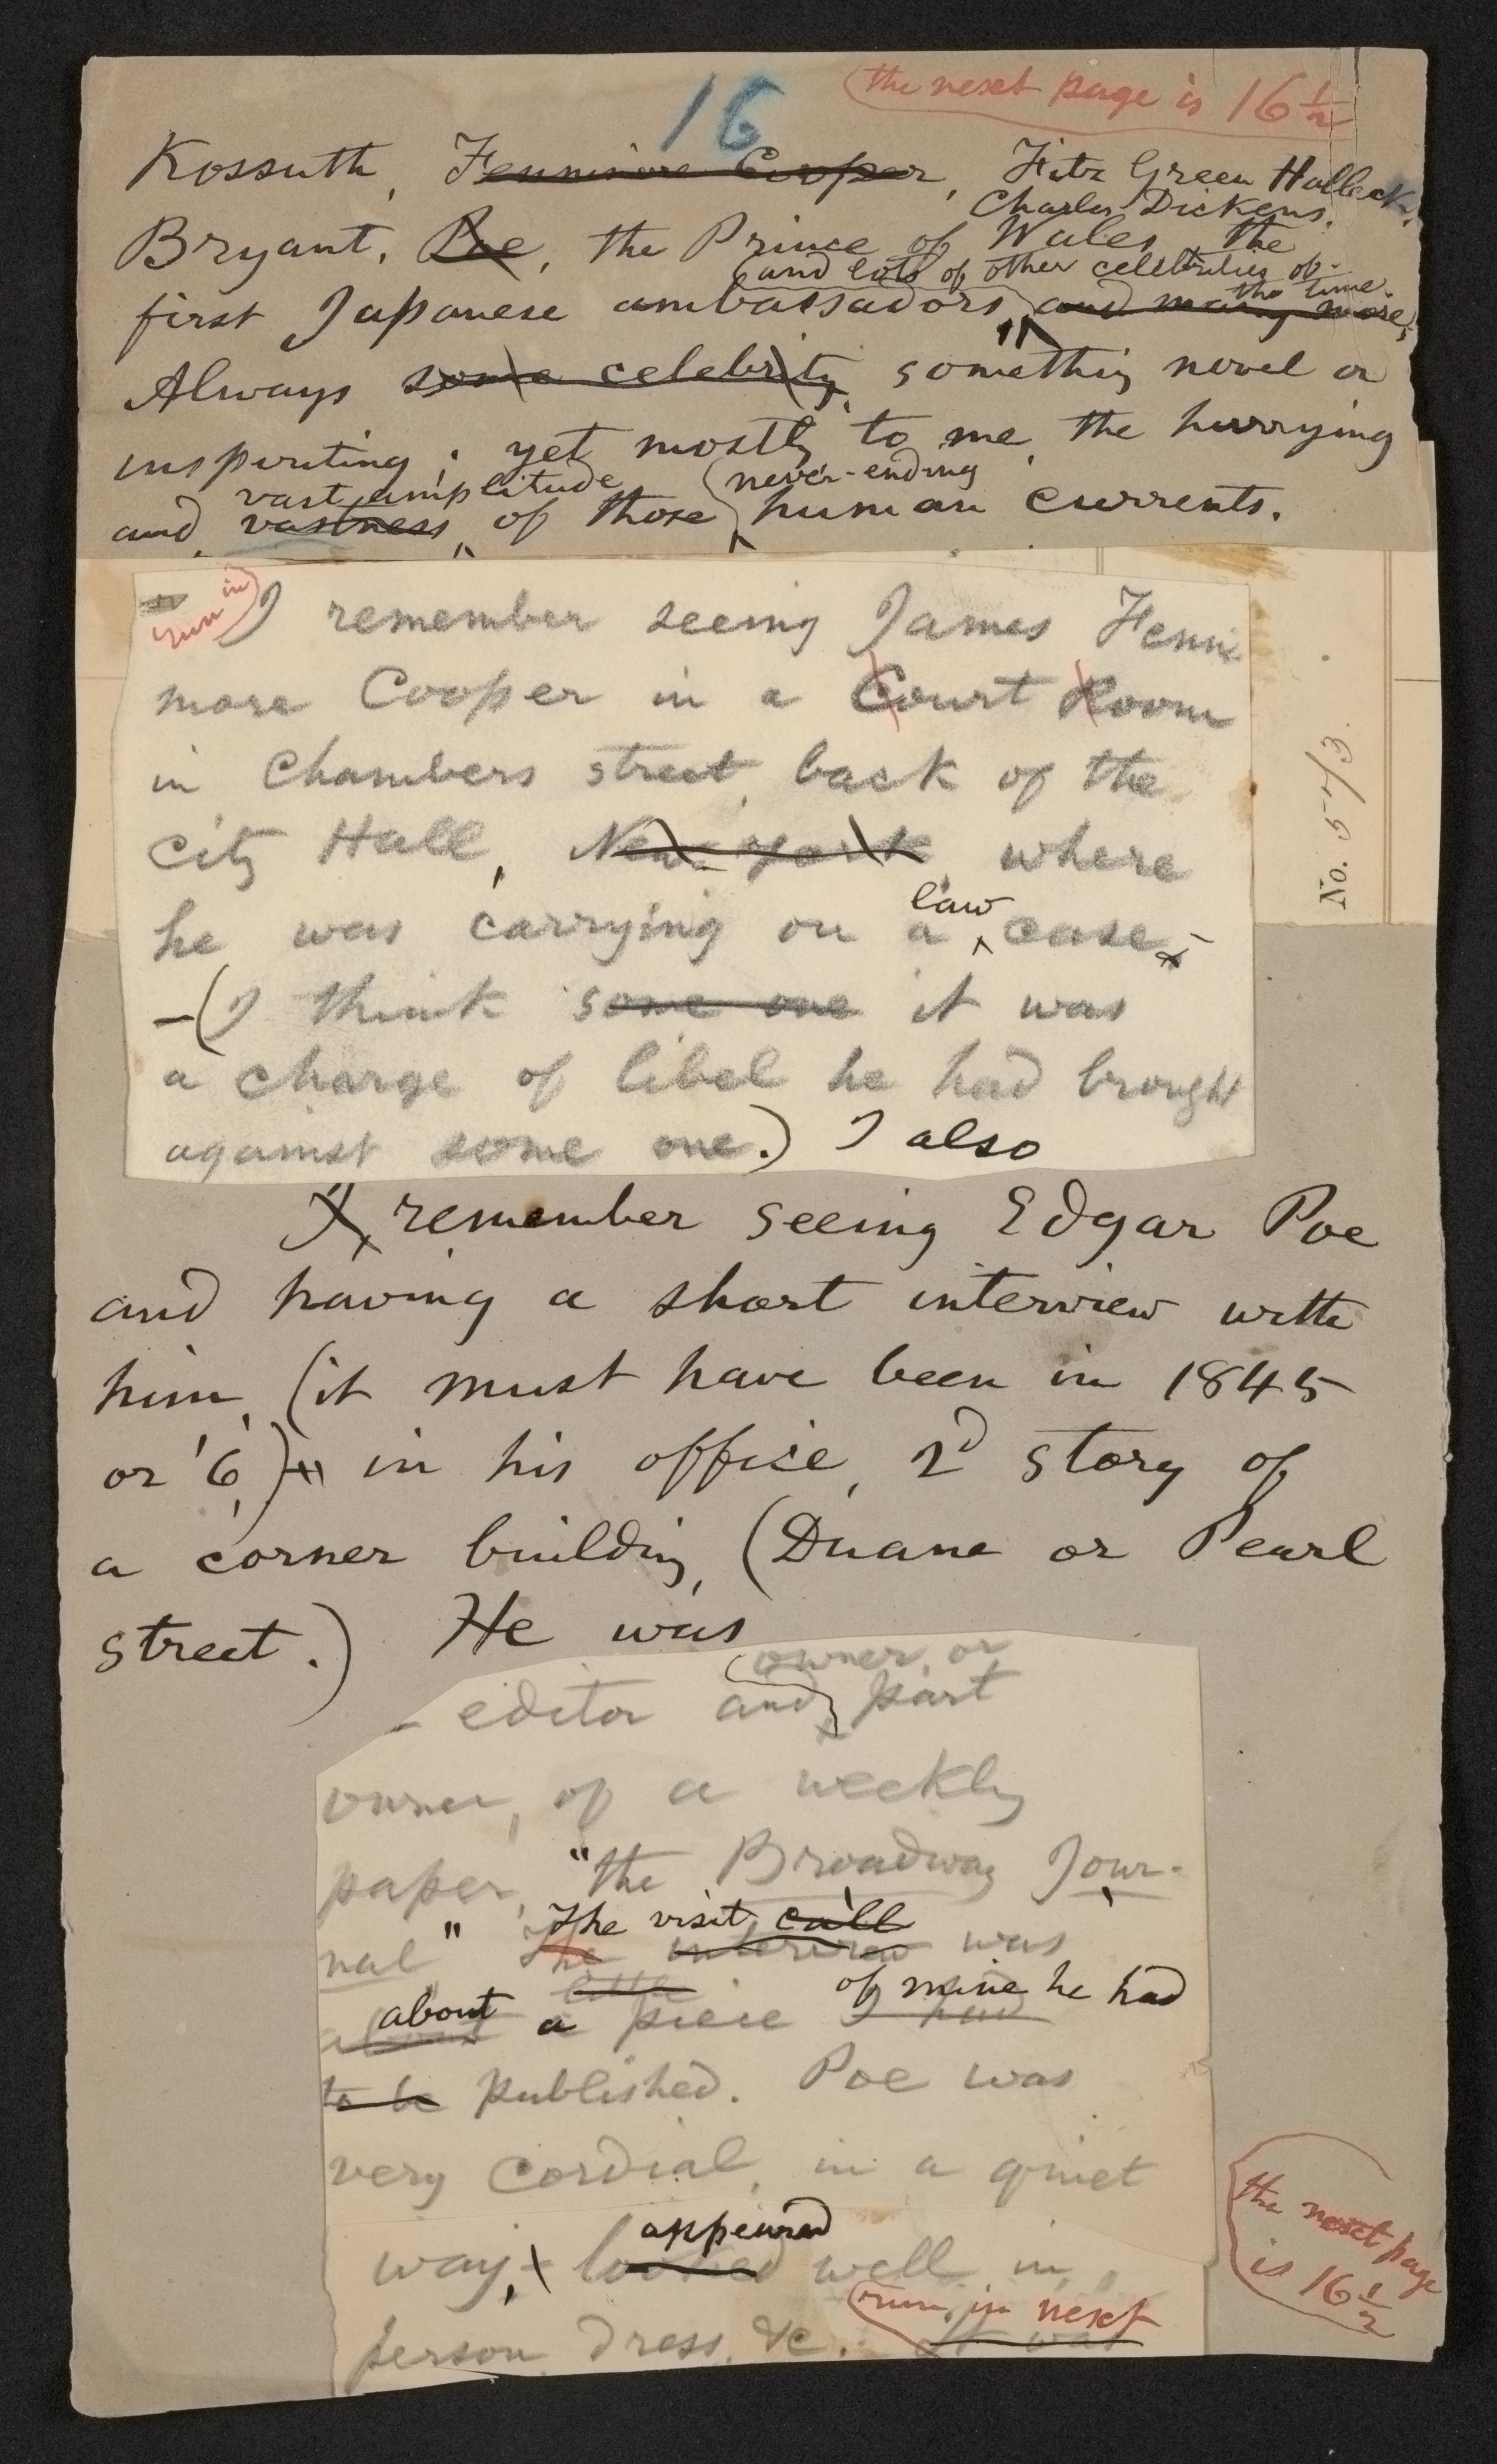 16
(the next page is 16 1/2
Kossuth, Fennimore Cooper, Fitz Green Halleck,
Charles Dickens,
Bryant, Poe, the Prince of Wales, the
(and lots of other celebrities of
the time.
first Japanese ambassadors, and many more,
Always some celebrity, something novel or
inspiriting; yet mostly to me, the hurrying
vast amplitude (never-ending
and vastness, of those human currents.
run in)
I remember seeing James Fenni
more Cooper in a Court Room
in Chambers street, back of the
City Hall, New York, where
law
he was carrying on a case,-
—(I think some one it was
a charge of libel he had brought
against some one.) I also
I, remember seeing Edgar Poe
and having a short interview with
him, (it must have been in 1845
or '6,) in his office, 2d story of
a corner building, (Duane or Pearl
street.) He was
(owner, or
- editor and part
owner, of a weekly
paper, "the Broadway Jour-
The visit call
nal" The interview was
little of mine he had
about about a piece I had
to be published. Poe was
very cordial, in a quiet
appeared
way, looked well in
(run in next
person, dress, &c. It was
No. 573.
the next page
is 16 1/2